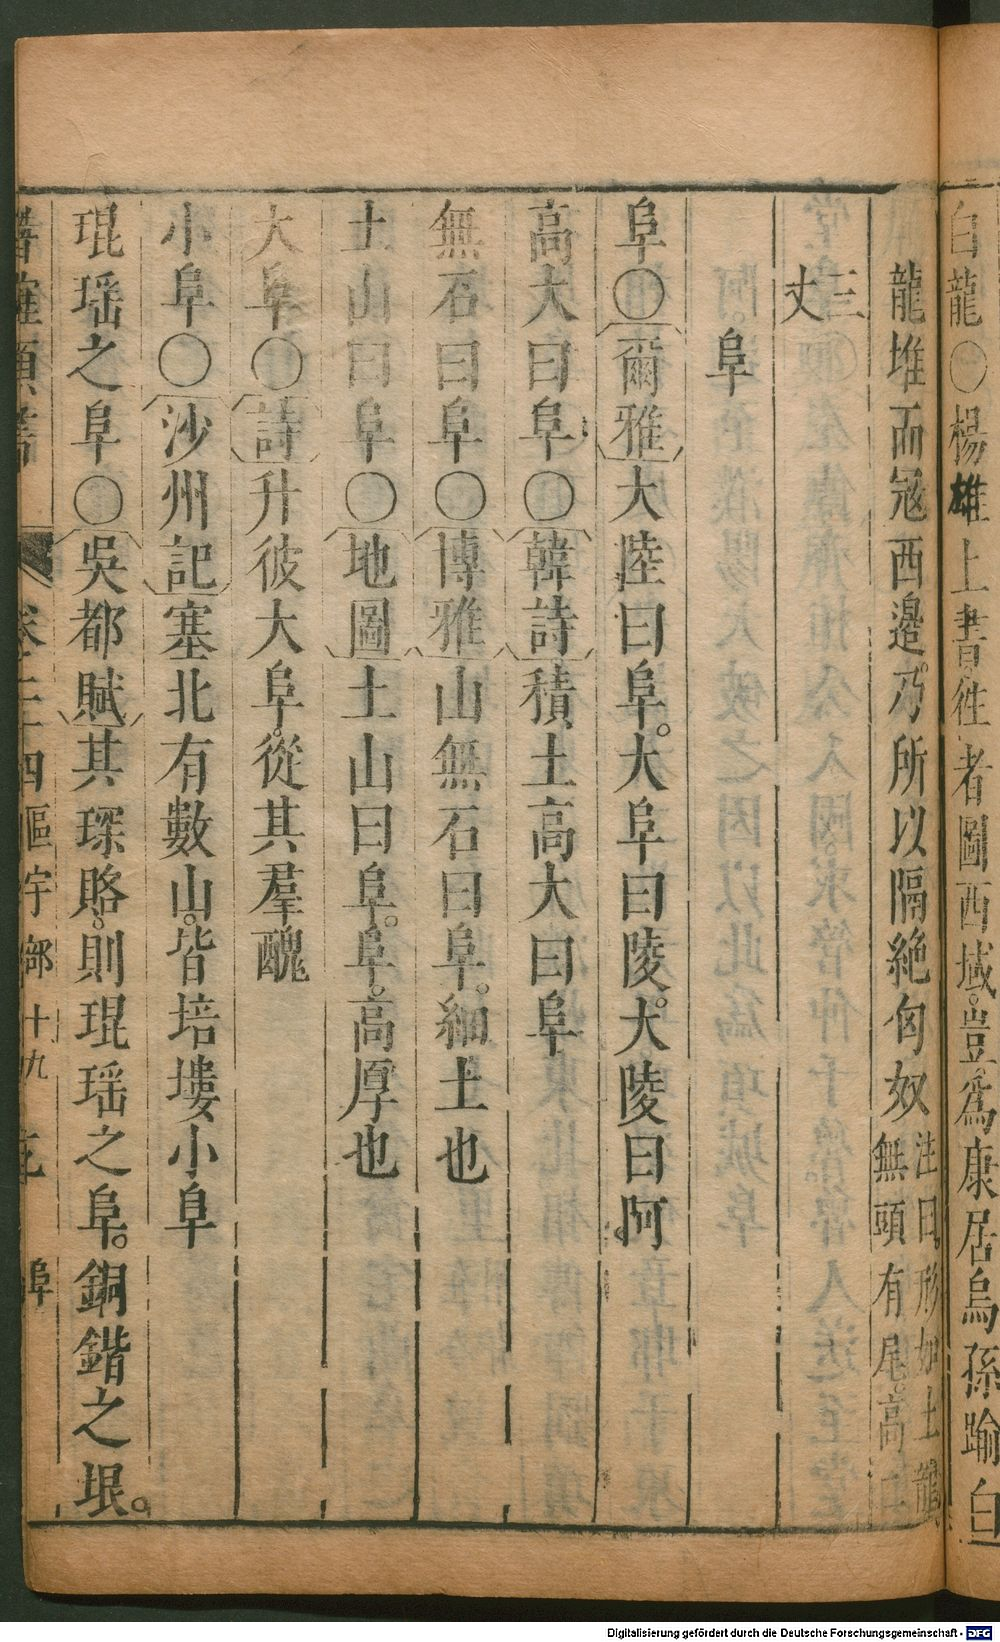 白龍○楊雄上書往者圖西域。豈爲康居烏孫踰白
龍堆而冦西邊。乃所以隔絶匈奴注曰。形如土龍
無頭有尾。高二
三
丈
阜
阜○爾雅大陸曰阜。大阜曰陵。大陵曰阿。
高大曰阜○韓詩積土高大曰阜
無石曰阜○博雅山無石曰阜。細土也
土山曰阜○地圖土山曰阜。阜。高厚也
大阜○詩升彼大阜。從其羣醜
小阜○沙州記塞北有數山。皆培塿小阜
琨瑶之阜○吳都賦其琛賂。則琨瑶之阜。銅鍇之垠。
卷二十四 區宇 十九 阜
Digitalisierung gefördert durch die Deutsche Forschungsgemeinschaft - DFG